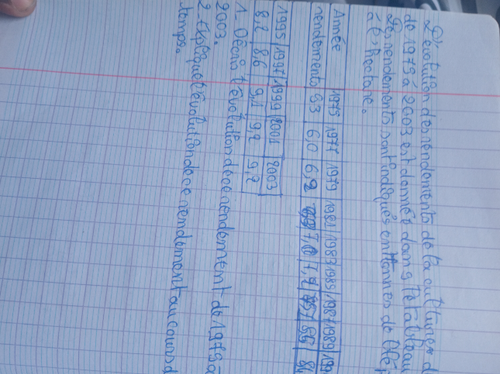 L'évolution des rendements de la culture d
de 1975 à 2003 est donnée dans le tableau
Des rendements sont indiqués en tonnes de
à l'Hectare.
Année 1975 1977 1979 1981 1983 1985 1987 1989 199
rendements 5,3 6,0 6,2 7,0 7,2
1995 1997 1999 2001 2003
8,2 8,6 9,1 9,2 9,2
1_ Décris l'évolution de ce rendement de 1975 à
2003.
2_ explique l'évolution de ce rendement au cours d
temps.